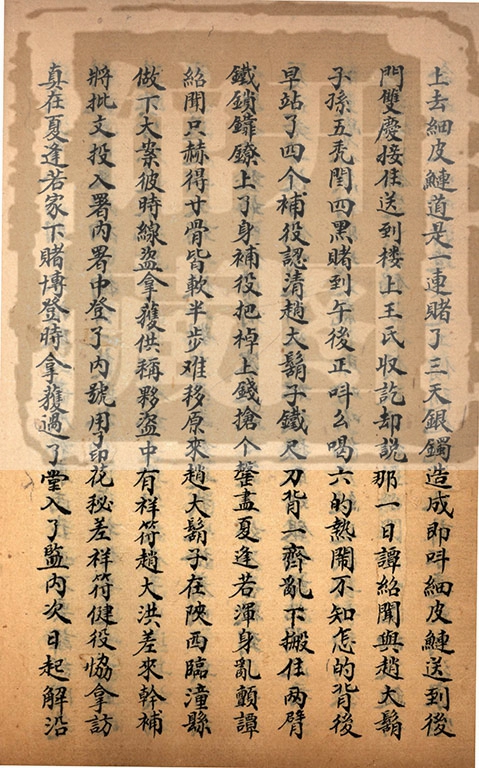 上去細皮鰱道是一連賭了三天銀鐲造成即呌細皮鰱送到後
門雙慶接住送到楼上王氏収訖却說那一日譚紹聞與趙大鬍
子孫五禿閆四黑賭到午後正呌么喝六的熱閙不知怎的背後
早站了四个補役認清趙大鬍子鐵尺刀背一齊亂下搬住两臂
鐵鎖鐐上了身補役把棹上錢搶个罄盡夏逢若渾身亂顫譚
紹聞只赫得廿骨皆軟半步难移原來趙大鬍子在陜西臨潼縣
做下大案彼時線盜拿獲供稱夥盗中有祥符趙大洪差來幹補
將批文投入署内署中登了内號用了印花秘差祥符健役恊拿訪
真在夏逢若家下賭博登時拿獲過了堂入了監内次日起解沿